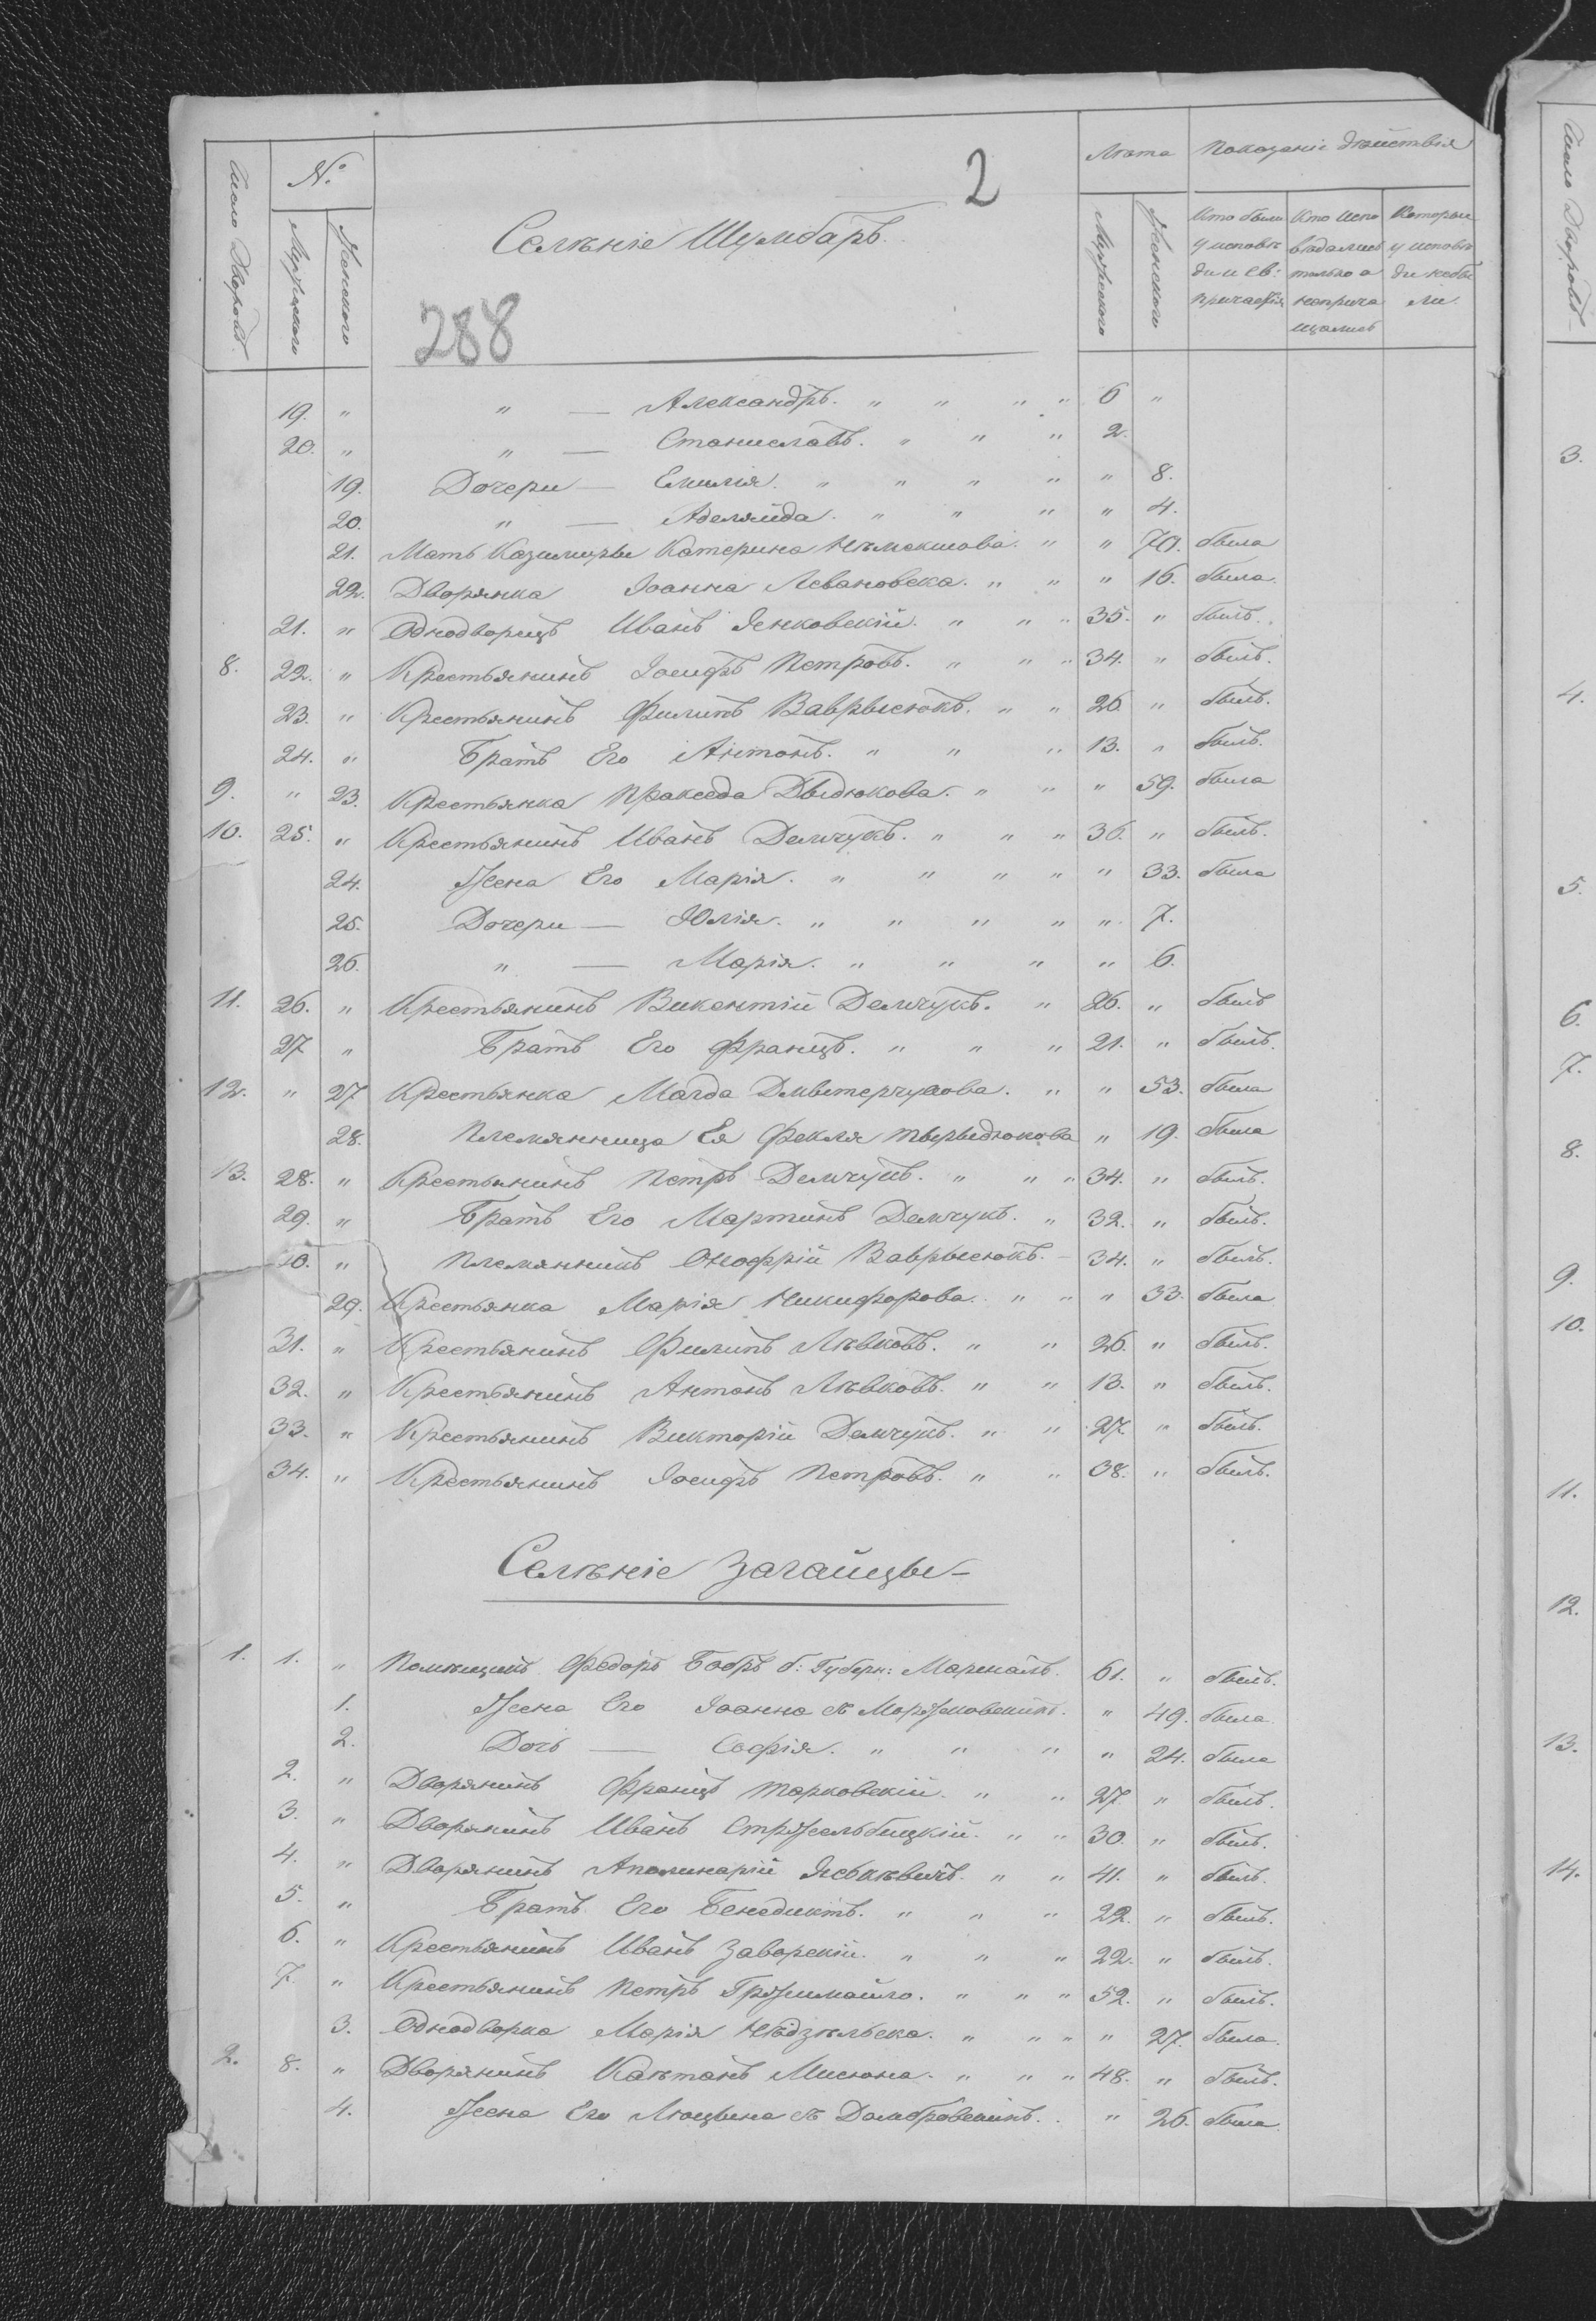 2
Число Дворовъ
№
Мужескаго
Женскаго
Селѣніе Шумбаръ.
288
Лѣта
Мужескаго
Женскаго
Показаніе дѣйствія
Кто были у исповѣди и св: причастія
Кто исповѣдались только а непричащались
Которые у исповѣди небыли
19. " " — Александръ. " " " " 6 "
20. " " — Станиславъ. " " " 2.
19. Дочери — Емилія. " " " " " 8.
20. " — Аделяйда. " " " " 4.
21. Мать Казимиры Катерина " " 70. была
22. Дворянка Іоанна Левановска. " " " 16. была.
21. " Однодворецъ Иванъ Янковскій. " " " 35. " былъ.
8. 22. " Крестьянинъ Іосифъ Петровъ. " " " 34. " былъ.
23. " Крестьянинъ Филипъ Ваврысюкъ. " " 26 " былъ.
24. " Братъ Его Антонъ. " " " 13. " былъ.
9. " 23. Крестьянка Пракседа Дыдюкова. " " " 59. была
10. 25. " Крестьянинъ Иванъ Демчукъ. " " " 36. " былъ.
24. Жена Его Марія. " " " " " 33. была
25. Дочери — Юлія. " " " " " 7.
26. " — Марія. " " " " 6.
11. 26. " Крестьянинъ Викентій Демчукъ. " 26. " былъ
27 " Братъ Его Францъ. " " " 21. " былъ.
12. " 27 Крестьянка Магда " " 53. была
28. Племянница Ея Фекля " 19. была
13. 28. " Крестьянинъ Петръ Демчукъ. " " " 34. " былъ.
29. " Братъ Его Мартинъ Демчукъ. " 32. " былъ.
30. " Племянникъ Онофрій Ваврысюкъ. — 34. " былъ.
29. Крестьянка Марія Никифорова. " " " 33. была
31. " Крестьянинъ Филипъ Лѣвковъ. " " 26. " былъ.
32. " Крестьянинъ Антонъ Лѣвковъ. " " 13. " былъ.
33. " Крестьянинъ Викторій Демчукъ. " " 27. " былъ.
34. " Крестьянинъ Іосифъ Петровъ. " " 38. " былъ.
Селѣніе Загайцы —
1. 1. " Помѣщикъ Федоръ Бобръ б: Губерн: Маршалъ. 61. " былъ.
1. Жена Его Іоанна съ Моржковскихъ. " 49. была
2. Дочь — Софія. " " " " 24. была
2. " Дворянинъ Францъ Тарковскій. " " 27. " былъ.
3. " Дворянинъ Иванъ Стржельбицкій. " " 30. " былъ.
4. " Дворянинъ Аполинарій " " 41. " былъ.
5. " Братъ Его Бенедиктъ. " " " 22. " былъ.
6. " Крестьянинъ Иванъ Заворскій. " " " 22. " былъ.
7. " Крестьянинъ Петръ Гржимайло. " " " 52. " былъ.
3. Однодворка Марія Нѣдзѣльска. " " " " 27. была.
2. 8. " Дворянинъ Каѣтанъ Мисюна. " " " 48. " былъ.
4. Жена Его Люцына съ Домбровскихъ. " 26. была
Число Дворовъ
3.
4.
5.
6.
7.
8.
9.
10.
11.
12.
13.
14.